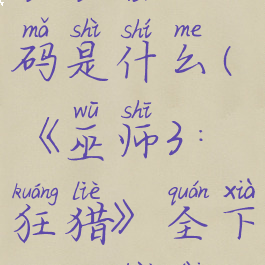 mǎ shì shí me
码是什么(
wū shī
《巫师3:
kuáng liè quán xià
狂猎》全下